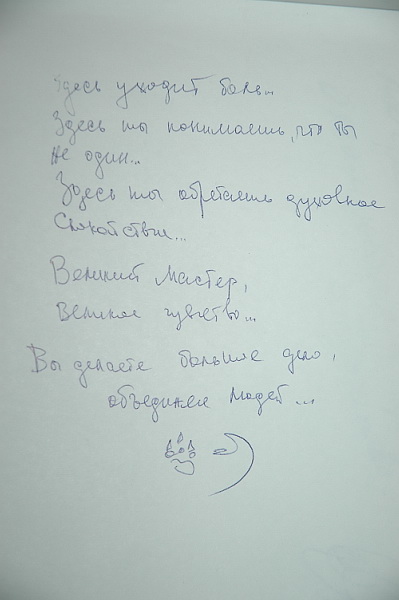 Здесь уходит боль...
Здесь ты понимаешь, что ты
не один...
Здесь ты обретаешь духовное
спокойствие...
Великий мастер,
великое чувство...
Вы делаете большое дело,
объединяя людей...